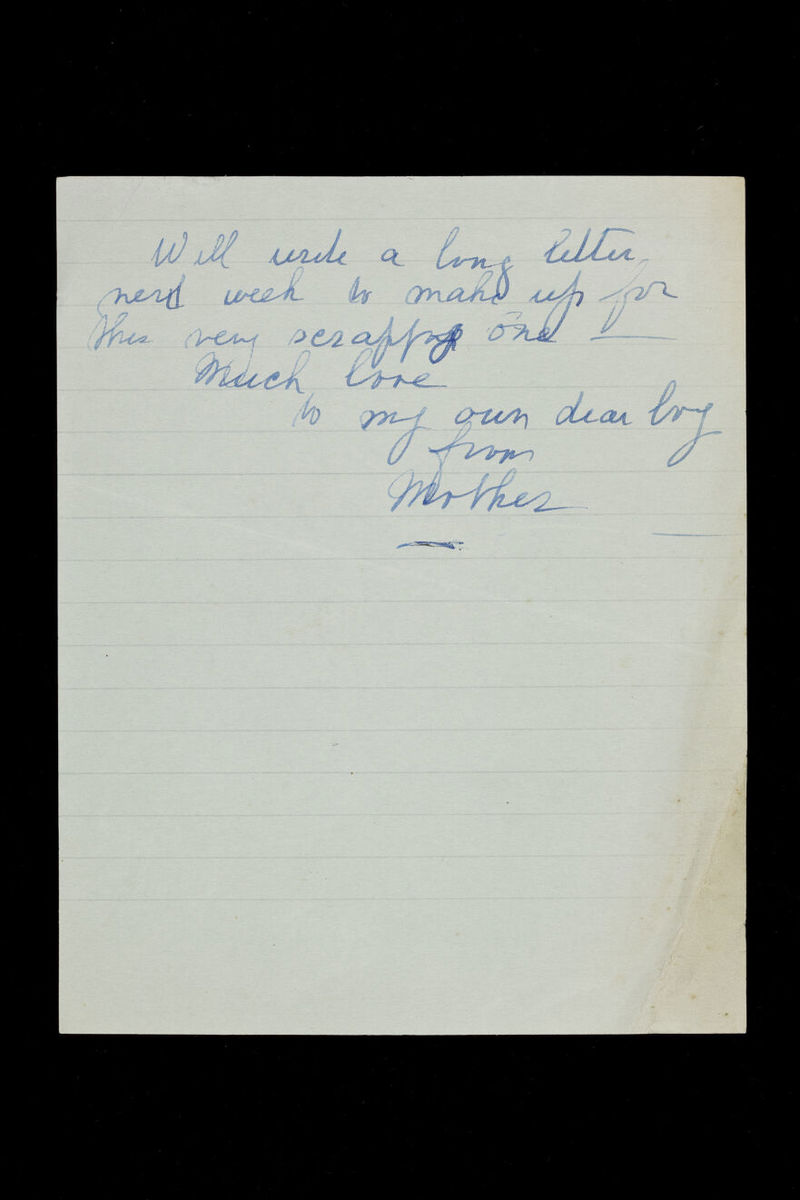 Will write a long letter
next week to make up for
this very scrappy one —
Much love
to my own dear boy
from
Mother